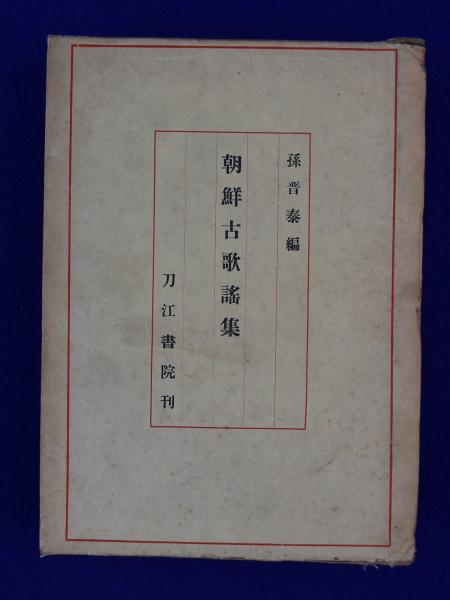 孫晋泰編
朝鮮古歌謠集
刀江書院刊